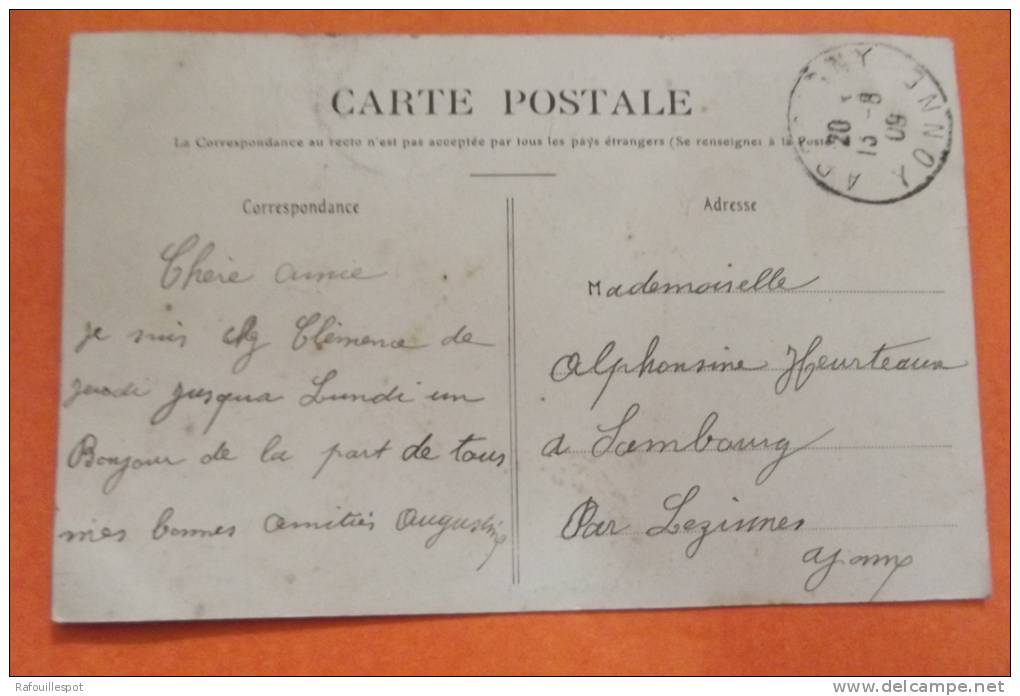 CARTE POSTALE
La Correspondance au recto n'est pas acceptée par tous les pays étrangers (Se renseigner à la Poste)
Correspondance
Chère amie
je suis chez Clémence de
jeudi jusqua Lundi un
Bonjour de la part de tous
mes bonnes amitiés Augustine
Adresse
Mademoiselle
Alphonsine Heurteaux
a Sambourg
Par Lezinnes
YONNE
20
13 -8
09
Rafouillespot
www.delcampe.net